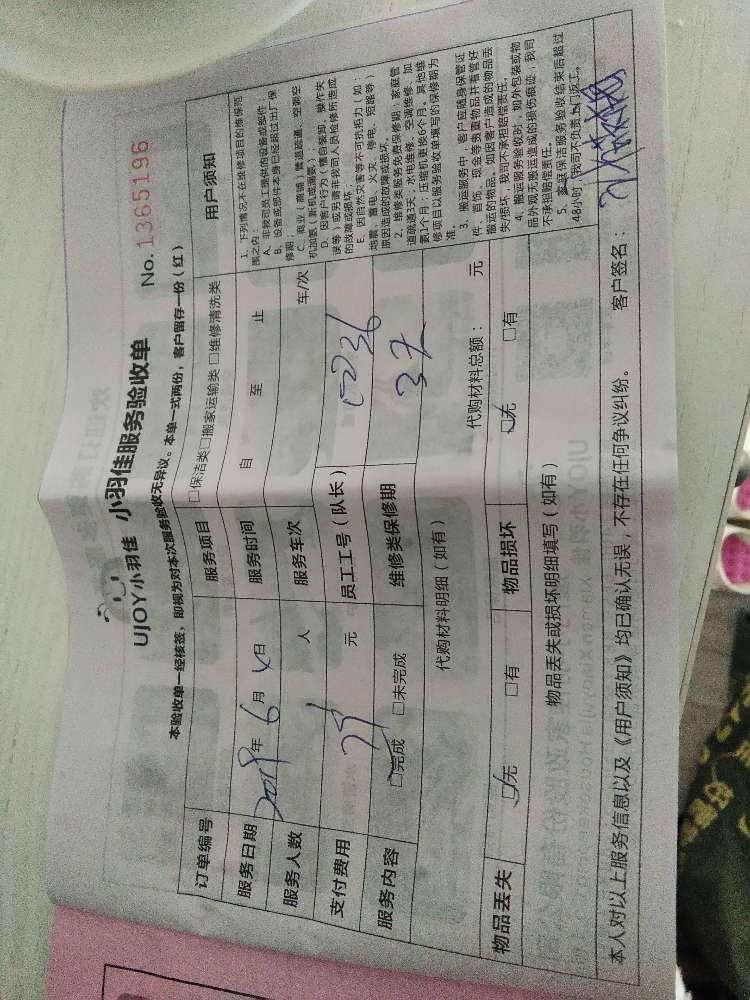 UJOY小羽佳 小羽佳服务验收单
No. 1365196
本验收单一经核签，即视为对本次服务验收无异议。本单一式两份，客户留存一份（红）
订单编号
服务项目 □保洁类□搬家运输类 □维修清洗类
服务日期 2018年 6月 4日
服务时间 自 至 止
服务人数 1 人
服务车次 车/次
支付费用 元
员工工号（队长） 0236
服务内容 □完成 □未完成
维修类保修期 3天
代购材料明细（如有）
代购材料总额： 元
物品丢失 □无 □有
物品损坏 □无 □有
物品丢失或损坏明细填写（如有）
用户须知
1、下列情况不在维修项目的维保范
围之内：
A、非我司员工提供的设备或部件；
B、设备或部件本身已经超过出厂保
修期；
C、商业（商铺）管道疏通、空调空
机加氨（新机或漏氨）
D、因客户行为（擅自装卸、操作失
误等）或另请非我司人员检修所造成
的故障或损坏；
E、因自然灾害等不可抗拒力（如：
地震、雷电、火灾、停电、短路等）
原因造成的故障或损坏。
2、维修类服务免费保修期：家庭管
道疏通3天；水电维修、空调维修、加
氨1个月；压缩机更换6个月。其他维
修项目以服务验收单填写的保修期为
准。
3、搬运服务中，客户应随身保管证
件、首饰、现金等贵重物品并看管好
搬运的物品。如因客户造成的物品丢
失/损坏，我司不承担赔偿责任。
4、搬运服务验收时，如外包装或物
品外观无搬运造成的损伤痕迹，我司
不承担赔偿责任。
5、家庭保洁服务验收结束后超过
48小时，我司不负责上门返工。
本人对以上服务信息以及《用户须知》均已确认无误，不存在任何争议纠纷。 客户签名：